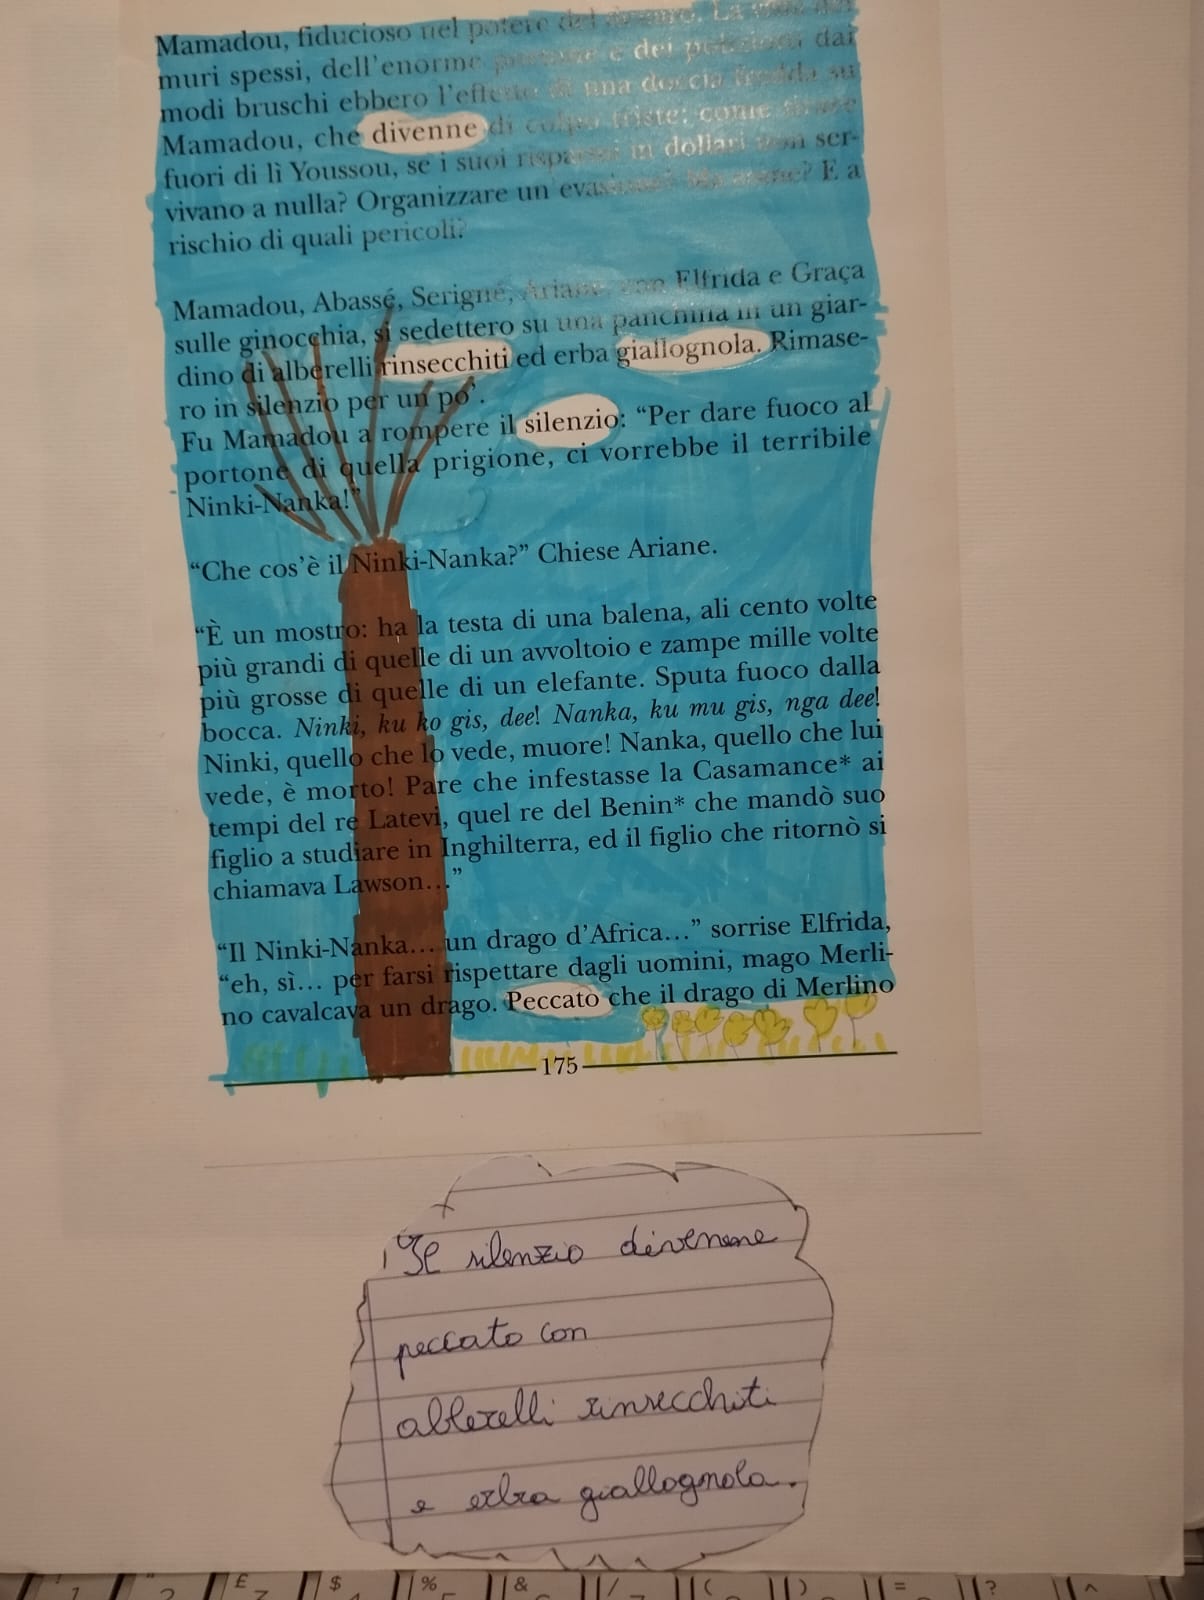 Mamadou, fiducioso nel potere del denaro. La vista dei
muri spessi, dell'enorme portone e dei poliziotti dai
modi bruschi ebbero l'effetto di una doccia fredda su
Mamadou, che divenne di colpo triste: come tirare
fuori di lì Youssou, se i suoi risparmi in dollari non ser-
vivano a nulla? Organizzare un'evasione? Ma come? E a
rischio di quali pericoli?
Mamadou, Abassé, Serigné, Ariane, con Elfrida e Graça
sulle ginocchia, si sedettero su una panchina in un giar-
dino di alberelli rinsecchiti ed erba giallognola. Rimase-
ro in silenzio per un po'.
Fu Mamadou a rompere il silenzio: “Per dare fuoco al
portone di quella prigione, ci vorrebbe il terribile
Ninki-Nanka!”
“Che cos'è il Ninki-Nanka?” Chiese Ariane.
“È un mostro: ha la testa di una balena, ali cento volte
più grandi di quelle di un avvoltoio e zampe mille volte
più grosse di quelle di un elefante. Sputa fuoco dalla
bocca. Ninki, ku ko gis, dee! Nanka, ku mu gis, nga dee!
Ninki, quello che lo vede, muore! Nanka, quello che lui
vede, è morto! Pare che infestasse la Casamance* ai
tempi del re Latevi, quel re del Benin* che mandò suo
figlio a studiare in Inghilterra, ed il figlio che ritornò si
chiamava Lawson…”
“Il Ninki-Nanka… un drago d'Africa…” sorrise Elfrida,
“eh, sì… per farsi rispettare dagli uomini, mago Merli-
no cavalcava un drago. Peccato che il drago di Merlino
175
Il silenzio divenne
peccato con
alberelli rinsecchiti
e erba giallognola.
£ $ % & / ( ) = ? ^